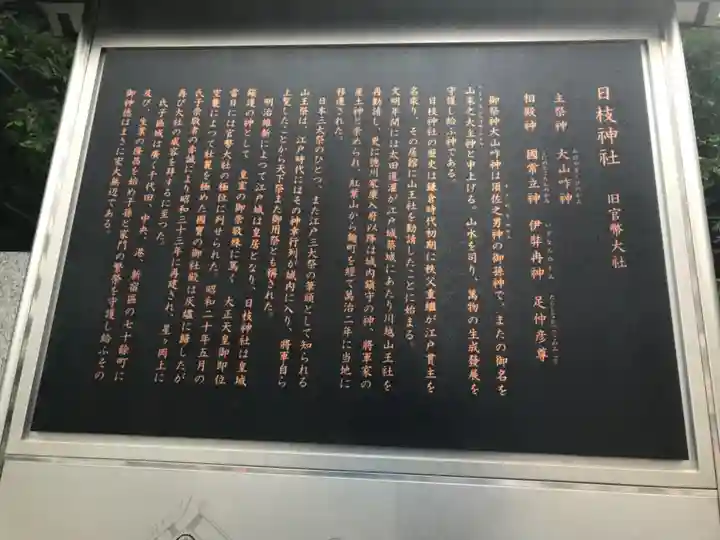 日枝神社　旧官幣大社
主祭神　大山咋神
相殿神　國常立神　伊弉冉神　足仲彦尊
御祭神大山咋神は須佐之男神の御孫神で、またの御名を
山末之大主神と申上げる。山水を司り、萬物の生成発展を
守護し給ふ神である。
日枝神社の歴史は鎌倉時代初期に秩父重継が江戸貫主を
名乗り、その居館に山王社を勧請したことに始まる。
文明年間には太田道灌が江戸城築城にあたり川越山王社を
再勧請し、更に徳川家康入府以降は城内鎮守の神、将軍家の
産土神と崇められ、紅葉山から麹町を経て萬治二年に当地に
移遷された。
日本三大祭のひとつ、また江戸三大祭の筆頭として知られる
山王祭は、江戸時代にはその神幸行列が城内に入り、將軍自ら
上覧したことから天下祭また御用祭とも称された。
明治維新によって江戸城は皇居となり、日枝神社は皇城
鎮護の神として　皇室の御崇敬殊に篤く　大正天皇御即位
當日には官幣大社の極位に列せられた。昭和二十年五月の
空襲によって社麗を極めた國寶の御社殿は灰燼に歸したが
氏子崇敬者の赤誠により昭和三十三年に再建され、星ヶ岡上に
再び大社の威容を拝するに至つた。
氏子區域は廣く千代田、中央、港、新宿區の七十餘町に
及び、生業の隆昌を始め子孫と家門の繁栄を守護し給ふその
御神徳はまさに宏大無辺である。